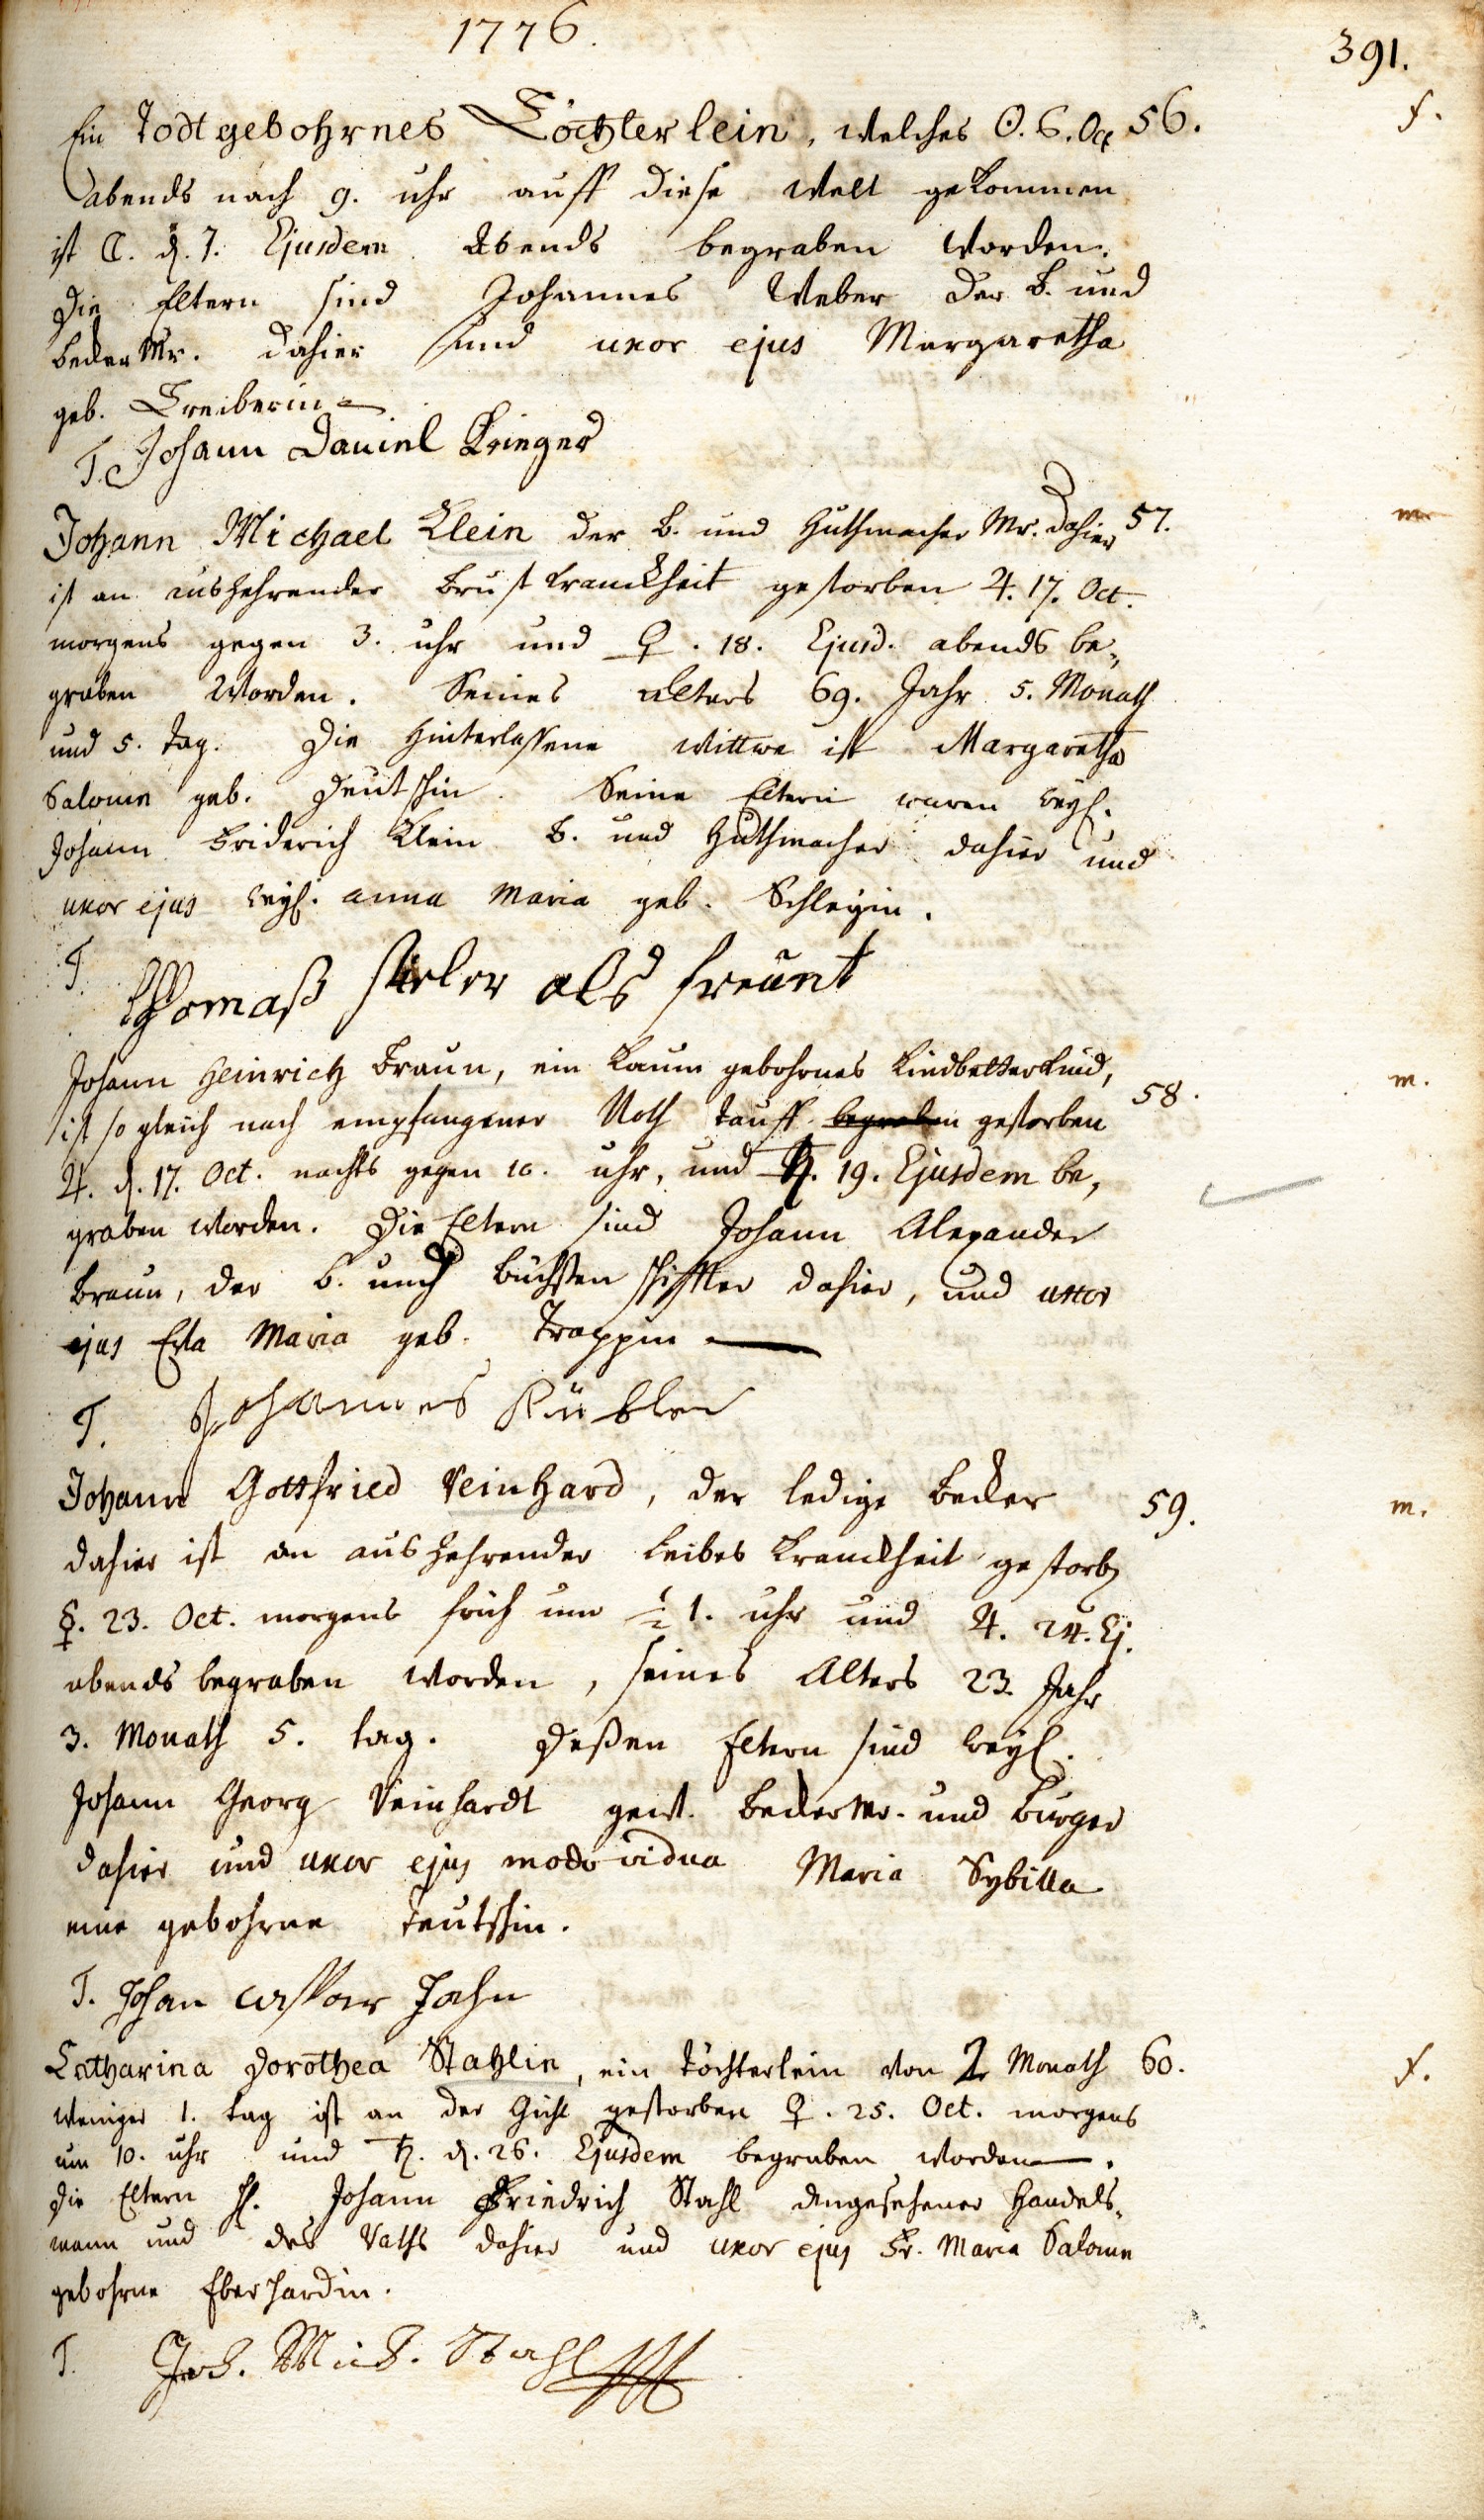 1776.
391.
Ein Todtgebohrnes Töchterlein, welches ☉. 6. Oct 56. f.
abends nach 9. uhr auff diese Welt gekommen
ist ☾. d. 7. Ejusdem Abends begraben worden.
Die Eltern sind Johannes Weber der B. und
Becker Mr. dahier und uxor ejus Margaretha
geb. Treiberin
T. Johann Daniel Krieger
Johann Michael Klein der B. und Huthmacher Mr. dahier 57. m.
ist an auszehrender Brust kranckheit gestorben ♃. 17. Oct.
morgens gegen 3. uhr und ♀. 18. Ejusd. abends be-
graben worden. Seines alters 69. Jahr 5. Monath
und 5. tag. Die Hinterlassene Wittwe ist Margaretha
Salome geb. Deutschin. Seine Eltern waren weyl.
Johann Friderich Klein B. und Huthmacher dahier und
uxor ejus weyl. anna Maria geb. Schleyin.
T.
Thomaß als freunt
Johann Heinrich Braun, ein kaum gebohrnes Kindbetterkind,
58. m.
ist so gleich nach empfangener Noth Tauff begraben gestorben
♃. d. 17. Oct. nachts gegen 10. uhr, und ♄. 19. Ejusdem be-
graben worden. Die Eltern sind Johann Alexander
Braun, der B. und Büchsen schiffter dahier, und uxor
ejus Eva Maria geb. Trappin
T. Johannes Kübler
Johann Gottfried Reinhard, der ledige Becker 59. m.
dahier ist an auszehrender Leibes kranckheit gestorben
☿. 23. Oct. morgens früh um ½ 1. uhr und ♃. 24. Ej.
abends begraben worden, seines Alters 23. Jahr
3. Monath 5. tag. Deßen Eltern sind weyl.
Johann Georg Reinhardt gew. Becker Mr. und Burger
dahier und uxor ejus modo vidua Maria Sybilla
eine gebohrne Teutschin.
T. Johan Casper Jahn
Catharina Dorothea Stahlin, ein Töchterlein von 2 Monath 60. f.
weniger 1. tag ist an der Gicht gestorben ♀. 25. Oct. morgens
um 10. uhr und ♄. d. 26. Ejusdem begraben worden.
Die Eltern H. Johann Friedrich Stahl angesehener Handels-
mann und des Raths dahier und uxor ejus Fr. Maria Salome
gebohrne Eberhardin.
T. Joh. Mich. Stahl